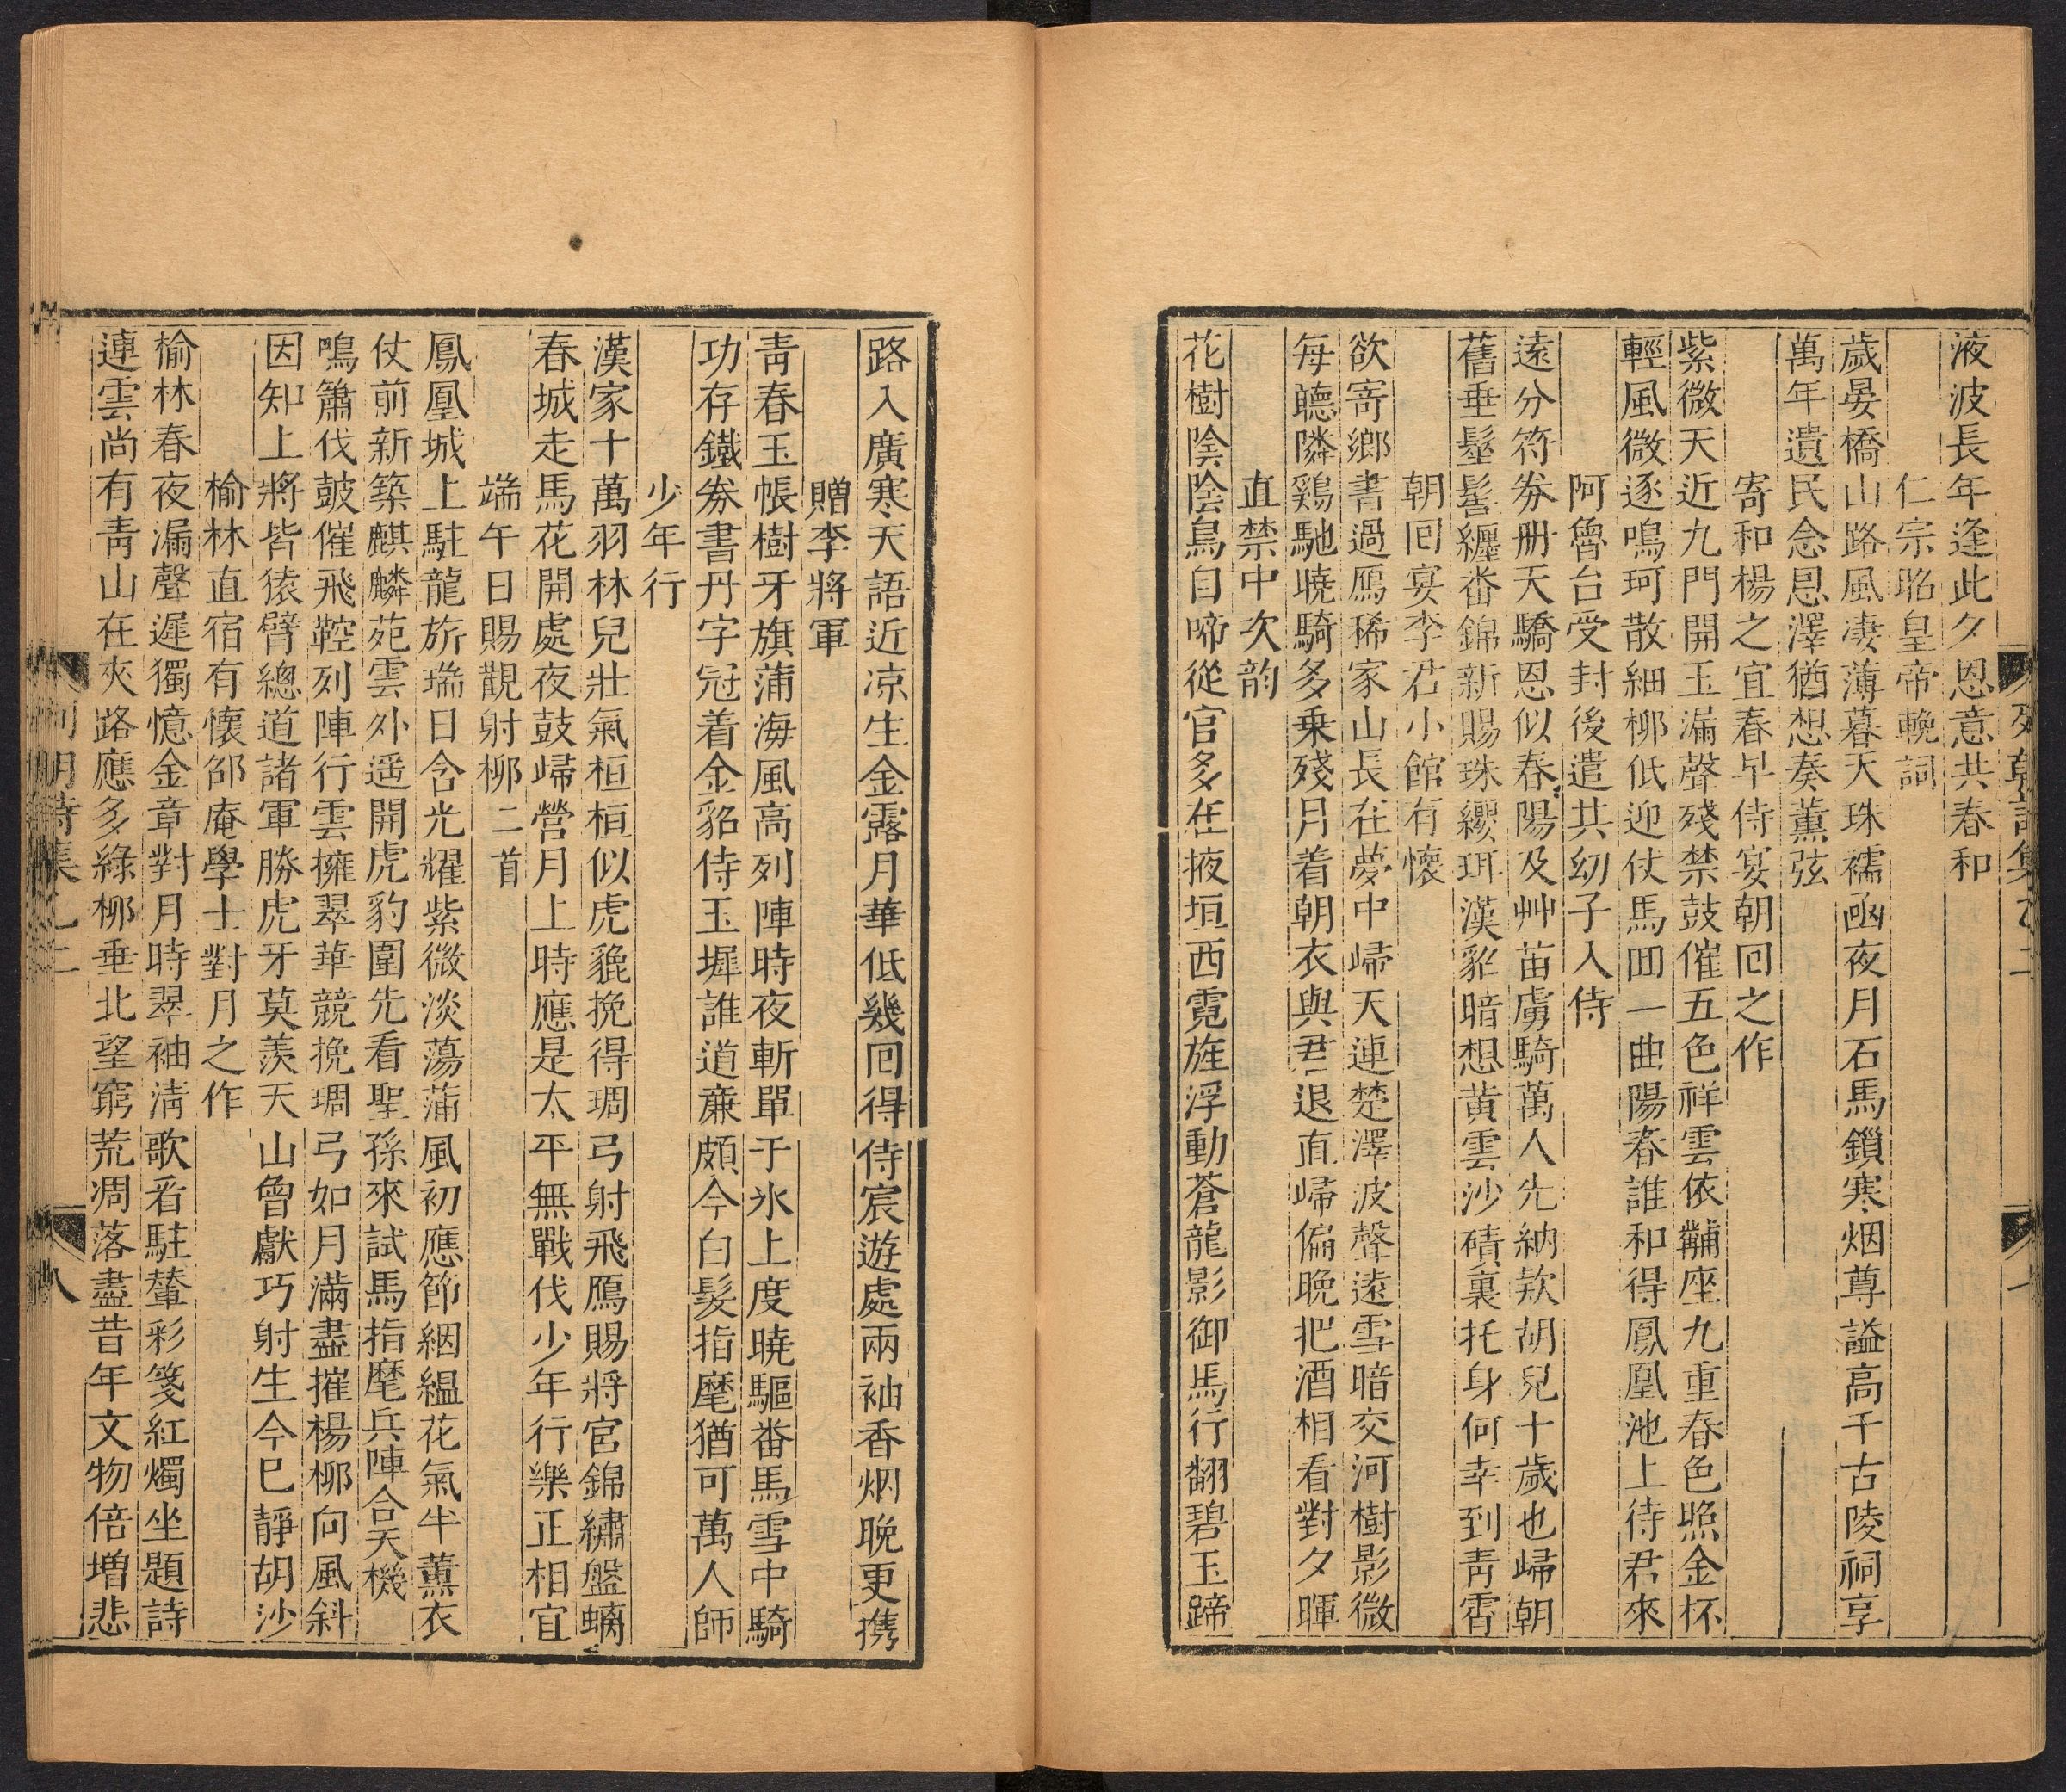 液波長年逢此夕恩意共春和
仁宗昭皇帝輓詞
歲晏橋山路風凄薄暮天珠襦凾夜月石馬鎖寒烟尊謚高千古陵祠享
萬年遺民念恩澤猶想奏薰弦
寄和楊之宜春早侍宴朝囘之作
紫微天近九門開玉漏聲殘禁鼓催五色祥雲依黼座九重春色照金杯
輕風微逐鳴珂散細柳低迎仗馬囬一曲陽春誰和得鳳凰池上待君來
阿魯台受封後遣其幼子入侍
遠分符劵册天驕恩似春陽及艸苗虜騎萬人先納欵胡兒十歲也歸朝
舊垂髽髻纏畨錦新賜珠纓珥漢貂暗想黃雲沙磧裏托身何幸到青霄
朝囘宴李君小館有懷
欲寄鄉書過鴈稀家山長在夢中歸天連楚澤波聲遠雪暗交河樹影微
每聽隣鷄馳曉騎多乗殘月着朝衣與君退直歸偏晚把酒相看對夕暉
直禁中次韵
花樹陰陰鳥自啼從官多在掖垣西霓旌浮動蒼龍影御馬行翻碧玉蹄
路入廣寒天語近凉生金露月華低幾囘得侍宸遊處兩袖香烟晚更携
贈李將軍
青春玉帳樹牙旗蒲海風高列陣時夜斬單于氷上度曉驅畨馬雪中騎
功存鐵劵書丹字冠着金貂侍玉墀誰道亷頗今白髮指麾猶可萬人師
少年行
漢家十萬羽林兒壯氣桓桓似虎貔挽得琱弓射飛鴈賜將宮錦繡盤螭
春城走馬花開處夜鼓歸營月上時應是太平無戰伐少年行樂正相宜
端午日賜觀射柳二首
鳳凰城上駐龍旂瑞日含光耀紫微淡蕩蒲風初應節絪緼花氣半薰衣
仗前新築麒麟苑雲外遥開虎豹圍先看聖孫來試馬指麾兵陣合天機
鳴簫伐鼓催飛鞚列陣行雲擁翠華競挽琱弓如月滿盡摧楊柳向風斜
因知上將皆猿臂總道諸軍勝虎牙莫羨天山曾獻巧射生今已靜胡沙
榆林直宿有懷邵庵學士對月之作
榆林春夜漏聲遲獨憶金章對月時翠袖清歌看駐輦彩箋紅燭坐題詩
連雲尚有青山在夾路應多綠柳垂北望窮荒凋落盡昔年文物倍增悲
列朝詩集乙二
八